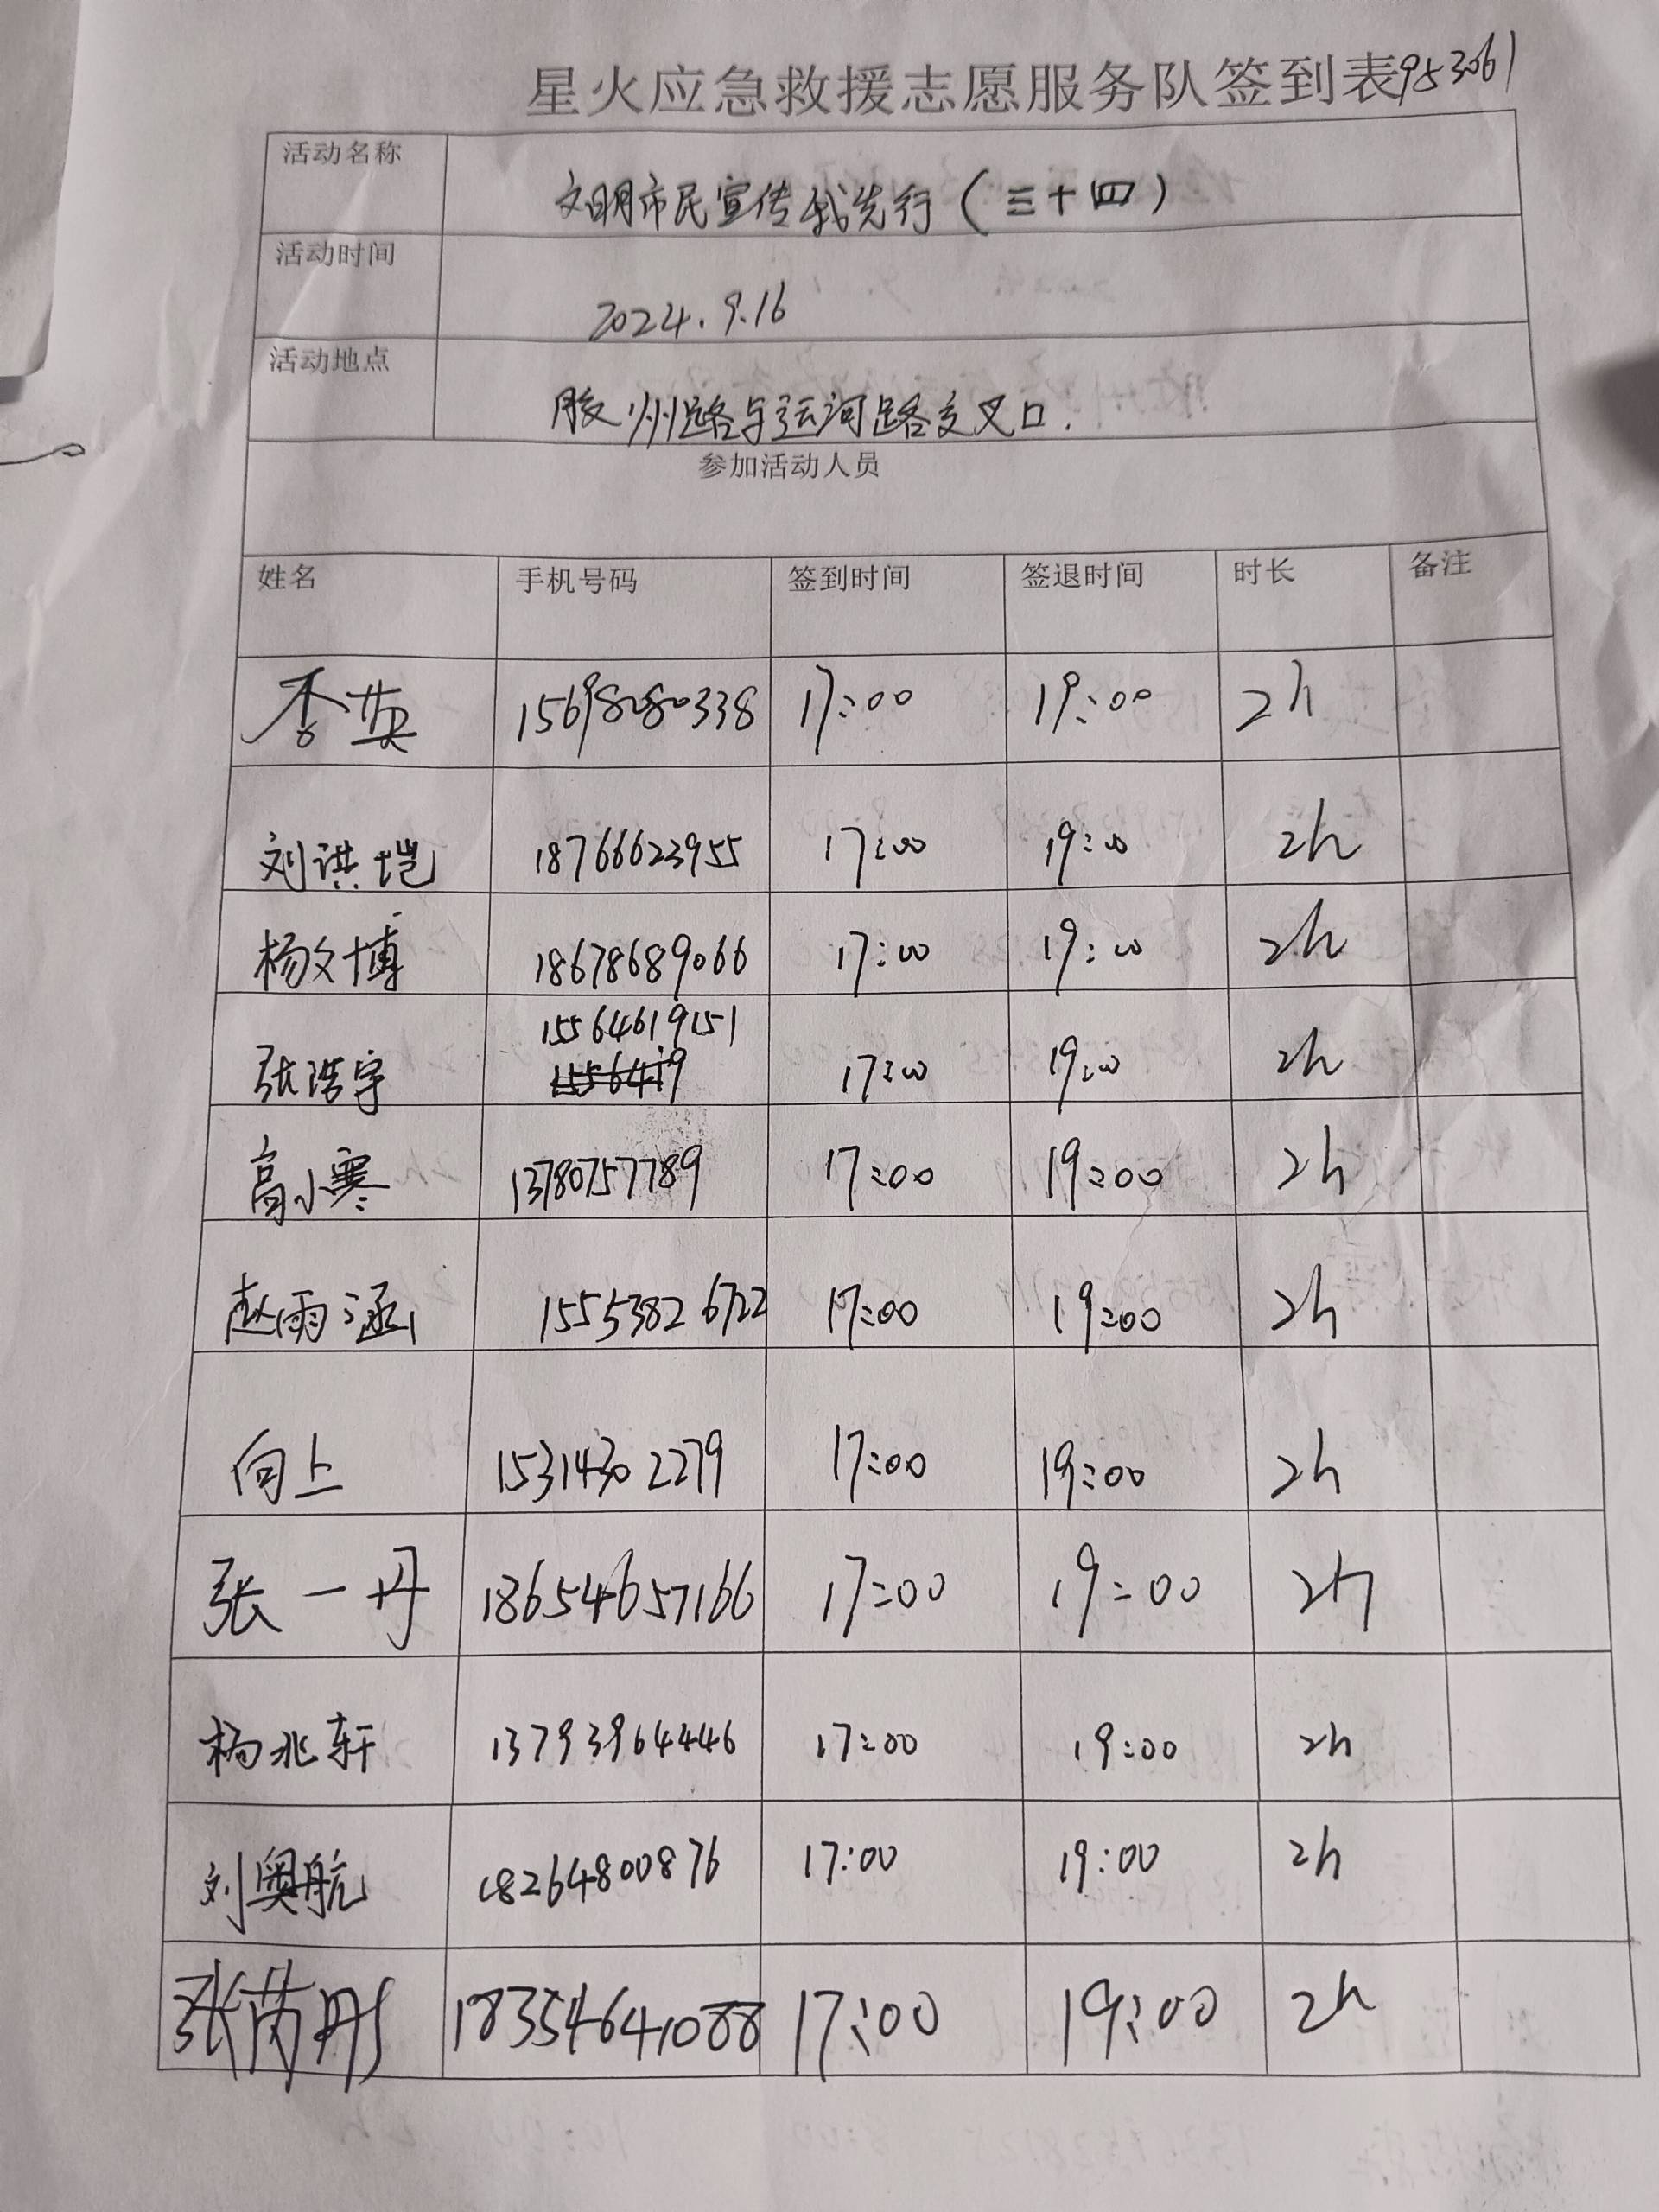 星火应急救援志愿服务队签到表953061
活动名称 文明市民宣传我先行(三十四)
活动时间 2024.9.16
活动地点 胶州路与运河路交叉口.
参加活动人员
姓名 手机号码 签到时间 签退时间 时长 备注
李英 15698080338 17:00 19:00 2h
刘洪恺 18766623955 17:00 19:00 2h
杨文博 18678689066 17:00 19:00 2h
15564619151
张浩宇 17:00 19:00 2h
高小寒 13780757789 17:00 19:00 2h
赵雨涵 15553826722 17:00 19:00 2h
向上 15314302279 17:00 19:00 2h
张一丹 18654657166 17:00 19:00 2h
杨兆轩 13793964446 17:00 19:00 2h
刘奥航 18264800876 17:00 19:00 2h
张芮彤 18354641088 17:00 19:00 2h